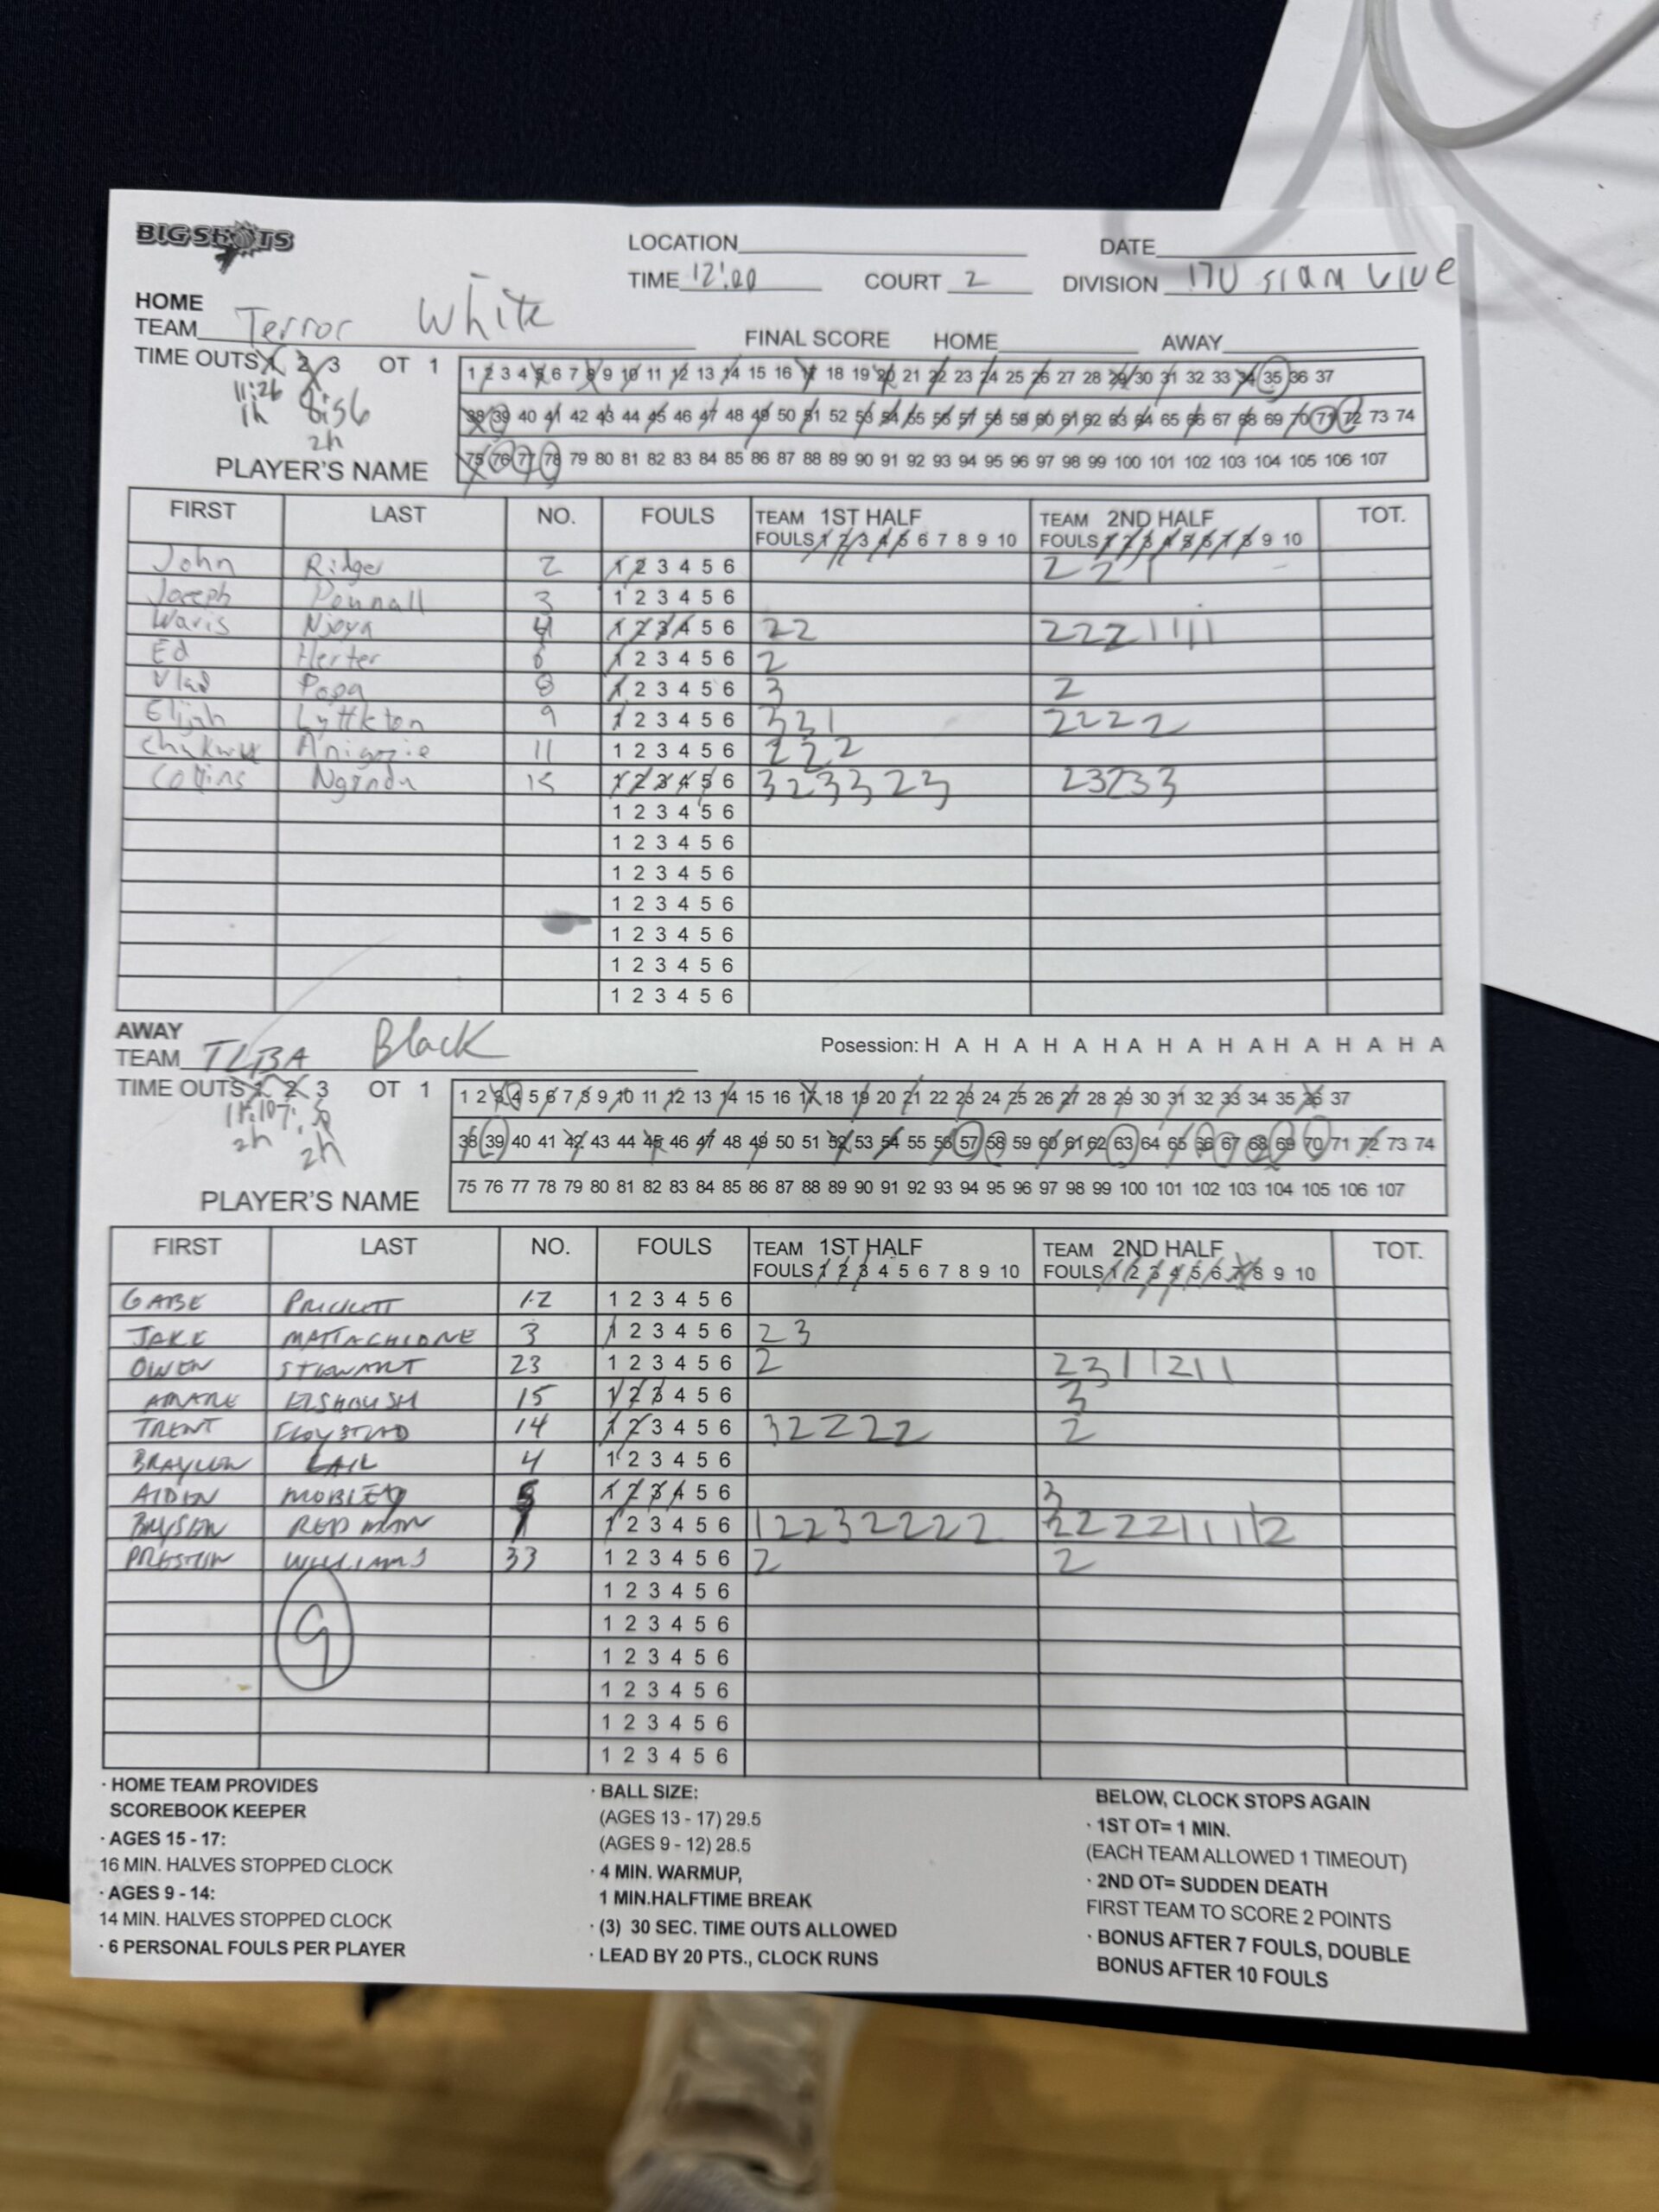 BIG SHOTS
LOCATION DATE
TIME 12:00 COURT 2 DIVISION 17U slam blue
HOME
TEAM Terror White
FINAL SCORE HOME AWAY
TIME OUTS 1 2 3 OT 1
11:26
1h 8:56
2h
1 2 3 4 5 6 7 8 9 10 11 12 13 14 15 16 17 18 19 20 21 22 23 24 25 26 27 28 29 30 31 32 33 34 35 36 37
38 39 40 41 42 43 44 45 46 47 48 49 50 51 52 53 54 55 56 57 58 59 60 61 62 63 64 65 66 67 68 69 70 71 72 73 74
75 76 77 78 79 80 81 82 83 84 85 86 87 88 89 90 91 92 93 94 95 96 97 98 99 100 101 102 103 104 105 106 107
PLAYER'S NAME
FIRST LAST NO. FOULS TEAM 1ST HALF TEAM 2ND HALF TOT.
FOULS 1 2 3 4 5 6 7 8 9 10 FOULS 1 2 3 4 5 6 7 8 9 10
John Ridger 2 1 2 3 4 5 6 2 2 1
Joseph Pennall 3 1 2 3 4 5 6
Waris Njoya 4 1 2 3 4 5 6 2 2 2 2 2 1 1 1 1
Ed Herter 6 1 2 3 4 5 6 2
Vlad Popa 8 1 2 3 4 5 6 3 2
Elijah Lyttkton 9 1 2 3 4 5 6 3 2 1 2 2 2 2
11 1 2 3 4 5 6 2 2 2
Collins 15 1 2 3 4 5 6 3 2 3 3 2 3 2 3 2 3 3
1 2 3 4 5 6
1 2 3 4 5 6
1 2 3 4 5 6
1 2 3 4 5 6
1 2 3 4 5 6
1 2 3 4 5 6
1 2 3 4 5 6
AWAY
TEAM TLBA Black
Posession: H A H A H A H A H A H A H A H A H A
TIME OUTS 1 2 3 OT 1
2h
2h
1 2 3 4 5 6 7 8 9 10 11 12 13 14 15 16 17 18 19 20 21 22 23 24 25 26 27 28 29 30 31 32 33 34 35 36 37
38 39 40 41 42 43 44 45 46 47 48 49 50 51 52 53 54 55 56 57 58 59 60 61 62 63 64 65 66 67 68 69 70 71 72 73 74
75 76 77 78 79 80 81 82 83 84 85 86 87 88 89 90 91 92 93 94 95 96 97 98 99 100 101 102 103 104 105 106 107
PLAYER'S NAME
FIRST LAST NO. FOULS TEAM 1ST HALF TEAM 2ND HALF TOT.
FOULS 1 2 3 4 5 6 7 8 9 10 FOULS 1 2 3 4 5 6 7 8 9 10
GABE PRICKETT 12 1 2 3 4 5 6
JAKE MATTACHIONE 3 1 2 3 4 5 6 2 3
OWEN STEWART 23 1 2 3 4 5 6 2 2 3 1 1 2 1 1
15 1 2 3 4 5 6 3
TRENT 14 1 2 3 4 5 6 3 2 2 2 2 2
BRAYLON LAIL 4 1 2 3 4 5 6
AIDEN MOBLEY 5 1 2 3 4 5 6 3
BRYSEN REDMAN 1 1 2 3 4 5 6 1 2 2 3 2 2 2 2 2 2 2 2 1 1 1 1 2
PRESTON WILLIAMS 33 1 2 3 4 5 6 2 2
1 2 3 4 5 6
9 1 2 3 4 5 6
1 2 3 4 5 6
1 2 3 4 5 6
1 2 3 4 5 6
1 2 3 4 5 6
· HOME TEAM PROVIDES
SCOREBOOK KEEPER
· AGES 15 - 17:
16 MIN. HALVES STOPPED CLOCK
· AGES 9 - 14:
14 MIN. HALVES STOPPED CLOCK
· 6 PERSONAL FOULS PER PLAYER
· BALL SIZE:
(AGES 13 - 17) 29.5
(AGES 9 - 12) 28.5
· 4 MIN. WARMUP,
1 MIN.HALFTIME BREAK
· (3) 30 SEC. TIME OUTS ALLOWED
· LEAD BY 20 PTS., CLOCK RUNS
BELOW, CLOCK STOPS AGAIN
· 1ST OT= 1 MIN.
(EACH TEAM ALLOWED 1 TIMEOUT)
· 2ND OT= SUDDEN DEATH
FIRST TEAM TO SCORE 2 POINTS
· BONUS AFTER 7 FOULS, DOUBLE
BONUS AFTER 10 FOULS